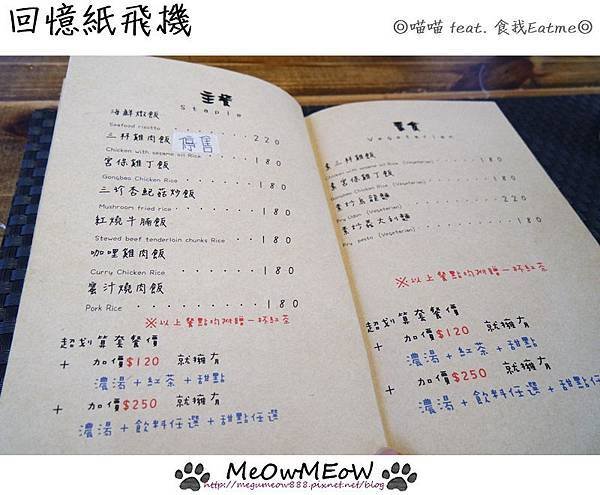 回憶紙飛機
◎喵喵 feat. 食我Eatme◎
主餐
Staple
海鮮燉飯
Seafood risotto ········· 220
三杯雞肉飯 停售
Chicken with sesame oil Rice ····· 180
宮保雞丁飯
Gongbao Chicken Rice ········ 180
三珍杏鮑菇炒飯
Mushroom fried rice ········ 180
紅燒牛腩飯
Stewed beef tenderloin chunks Rice ···· 180
咖哩雞肉飯
Curry Chicken Rice ········· 180
蜜汁燒肉飯
Pork Rice ············ 180
※以上餐點均附贈一杯紅茶
超划算套餐價
+ 加價$120 就擁有
濃湯+紅茶+甜點
+ 加價$250 就擁有
濃湯+飲料任選+甜點任選
素食
Vegetarian
素三杯雞飯
Chicken with sesame oil Rice (Vegetarian) ···· 180
素宮保雞丁飯
Gongbao Chicken Rice (Vegetarian) ······ 180
素炒烏龍麵
Fry Udon (Vegetarian) ········ 180
素炒義大利麵
Fry pasta (Vegetarian) ········ 220
※以上餐點均附贈一杯紅茶
超划算套餐價
+ 加價$120 就擁有
濃湯+紅茶+甜點
+ 加價$250 就擁有
濃湯+飲料任選+甜點任
MeOwMEoW
http://megumeow888.pixnet.net/blog